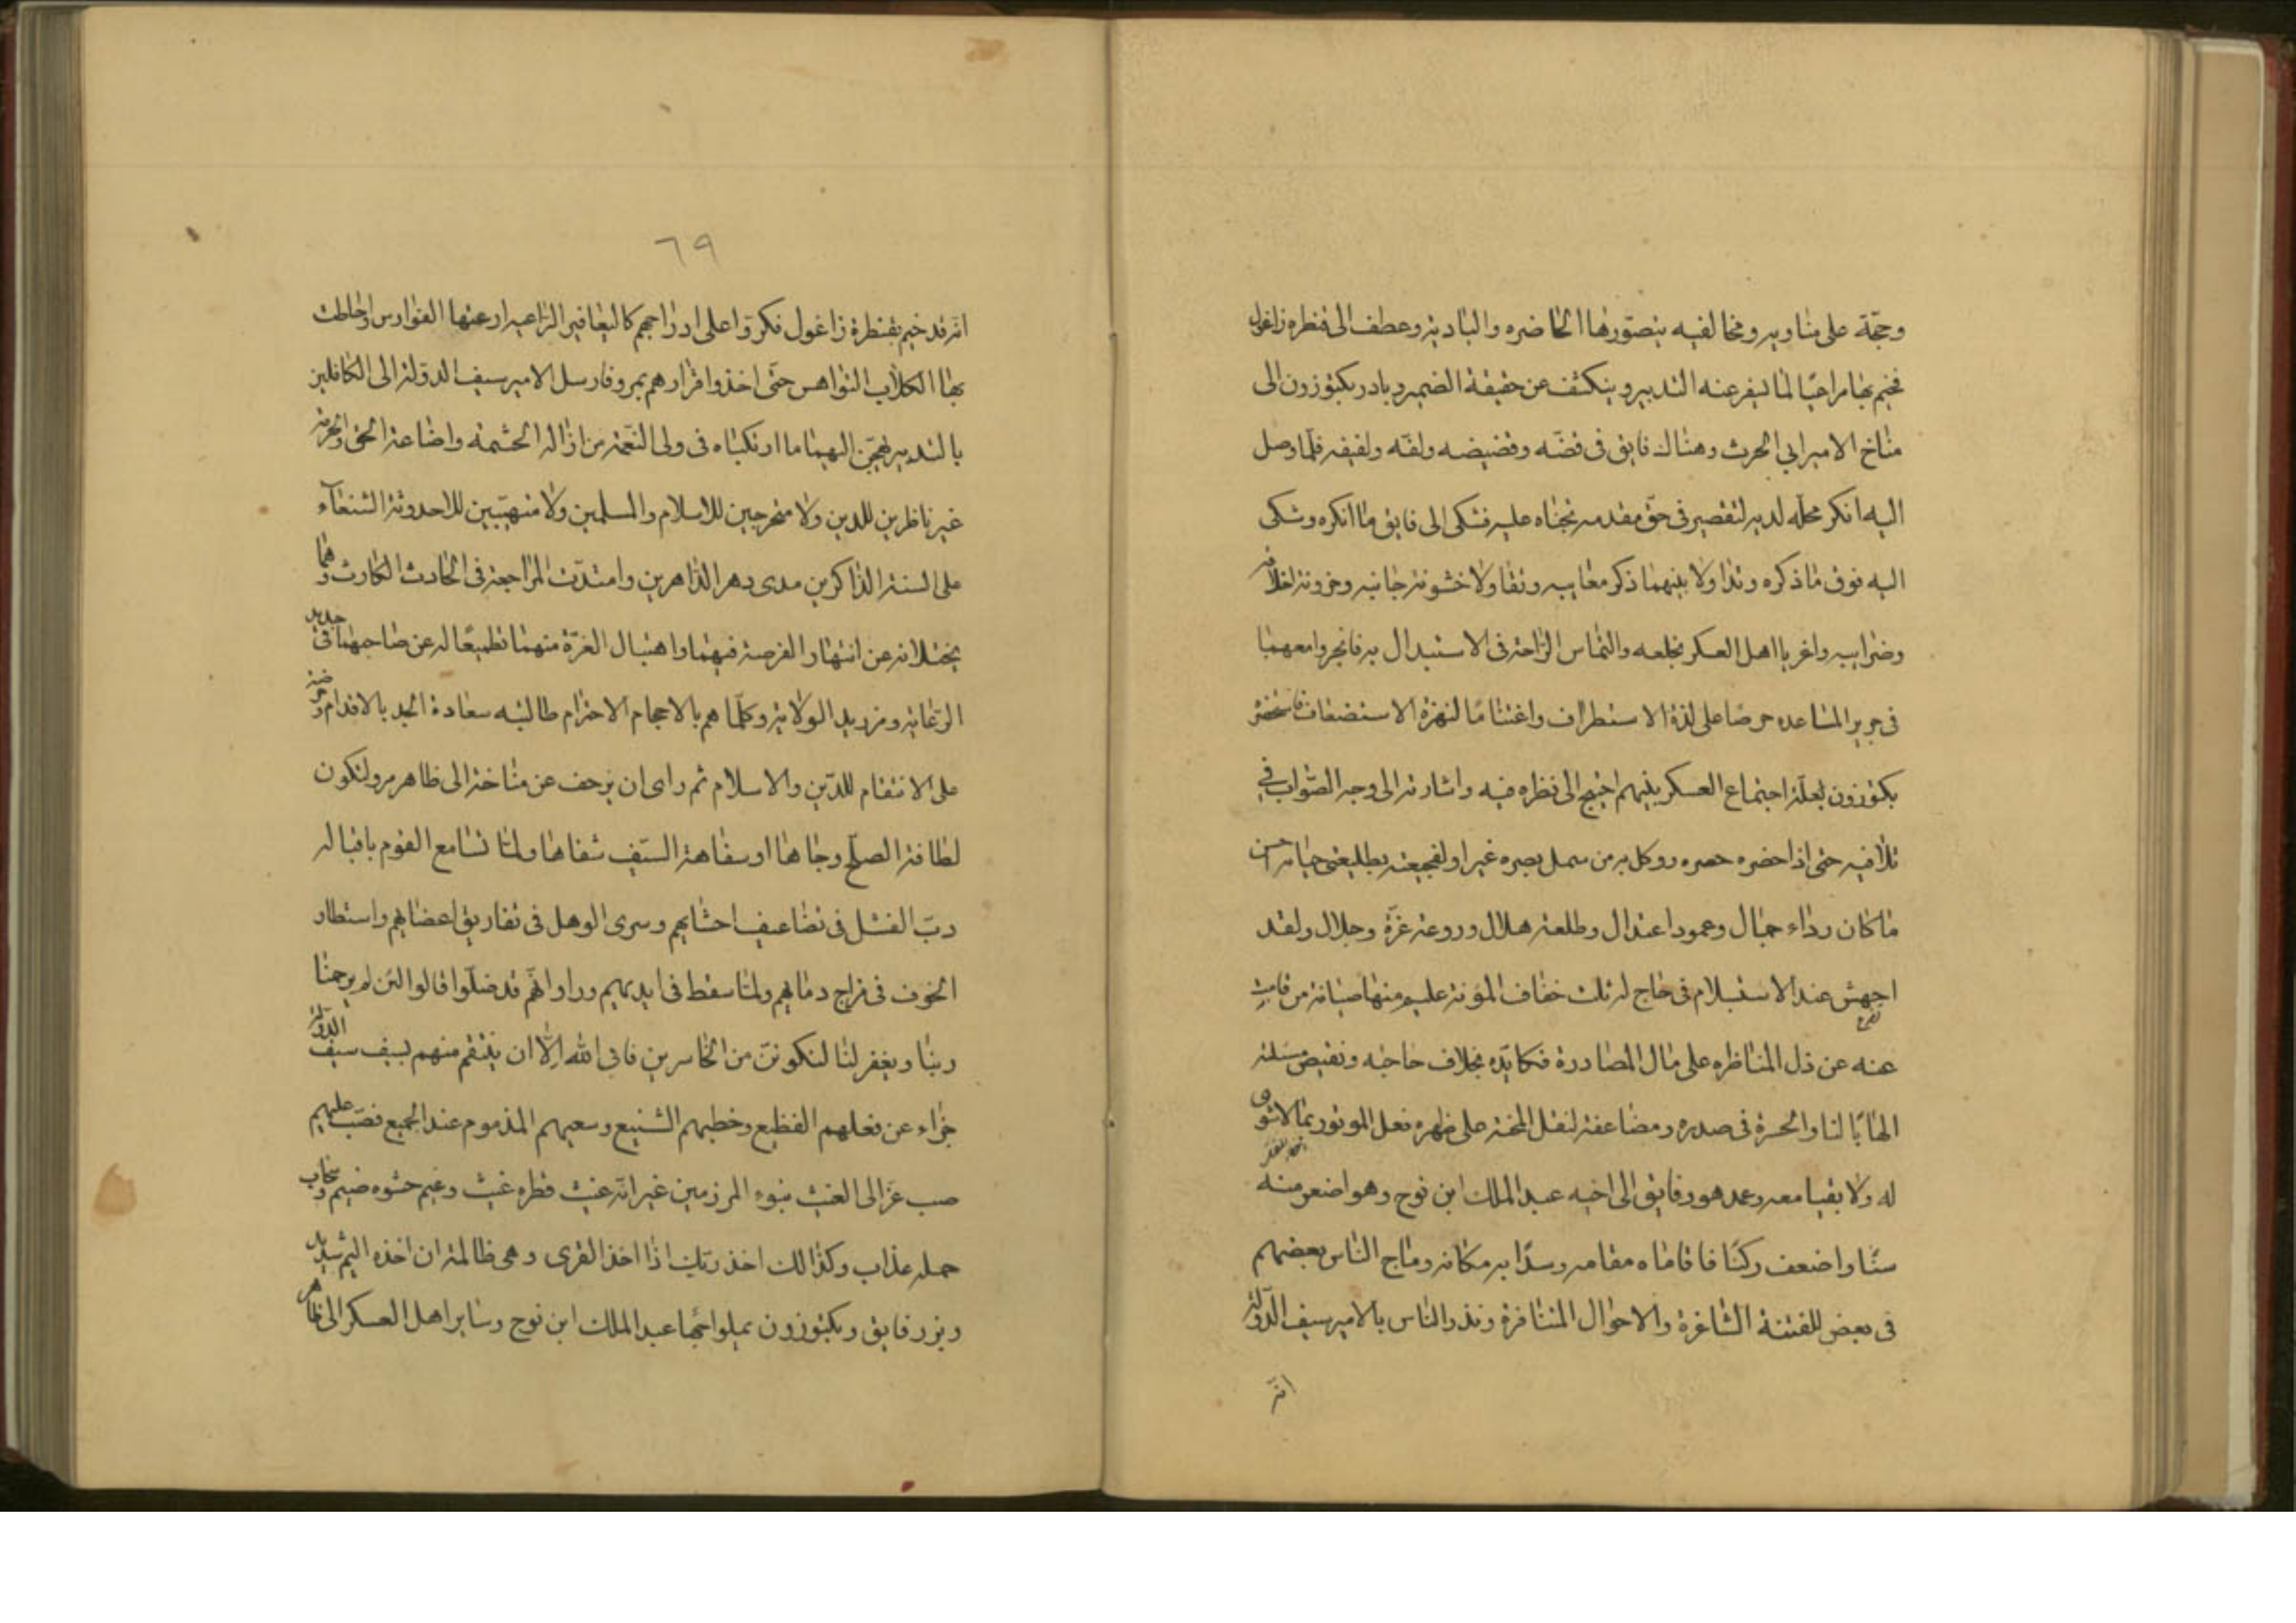 وحجّة على مناويه ومخالفيه يتصوّرها الحاضره والباديه وعطف الى قنطره زاغول
فخيم بها مراعيًا لما يسفر عنه التدبير وينكشف عن حقيقة الضمير وبادر بكتوزون الى
مناخ الامير ابي الحرث وهناك فايق فى قضّه وقضيضه ولفّه ولفيفه فلمّا وصل
اليه انكر محلّه لديه لتقصير فى حقّ مقدمه تجناه عليه فشكى الى فايق ما انكره وشكى
اليه فوق ما ذكره وتداولا بينهما ذكر معايبه وتقاولا خشونة جانبه وحزونة اخلاقه
وضرايبه واغريا اهل العسكر بخلعه والتماس الراحة فى الاستبدال به فانجروا معهما
فى جرير المساعده حرصًا على لذة الاستطراف واغتنامًا لنهزة الاستضعاف فاستحضره
بكتوزون لعلّة اجتماع العسكر بينهم احتيج الى نظره فيه واشارته الى وجه الصّواب في
تلافيه حتى اذا حضره حصره ووكل به من سمل بصره غير اولفجيعته بطليعتى حياته احسن
ما كان رداء جمال وعمود اعتدال وطلعة هلال وروعة غرّة وجلال ولقد
اجهش عند الاستسلام فى حاج له تلك خفاف المؤنة عليهم منها صيانة من قامت
تفرج
عنه عن ذل المناظره على مال المصادرة فكايدّه بخلاف حاجته ونقيض مسئلته
الهابًا لنار الحسرة فى صدره ومضاعفة لثقل المحنة على ظهره فعل الموتور بما لا شوى
له ولا بقيا معه وعمد هو وفايق الى اخيه عبد الملك ابن نوح وهو اضعر منه
سنًا واضعف ركنًا فاقاماه مقامه وسدّا به مكانه وماج الناس بعضهم
فى بعض للفتنة الشاغرة والاحوال المتنافرة ونذر الناس بالامير سيف الدّولة
انّه
٦٩
انّه قد خيم بقنطرة زاغول فكرّوا على ادراجهم كاليعافير الزاعبه ارعتها الفوارس او احاطت
بها الكلاب النواهس حتّى اخذوا قرارهم بمرو فارسل الامير سيف الدولة الى الكافلين
بالتدبير يهجّن اليهما ما ارتكباه فى ولى النّعمة من ازالة الحشمة واضاعة الحق والحرمة
غير ناظرين للدين ولا متحرجين للاسلام والمسلمين ولا متهيّبين للاحدوثة الشنعآء
على السنة الذاكرين مدى دهر الداهرين وامتدّت المراجعة فى الحادث الكارث وهما
يختلانه عن انتهاز الفرصة فيهما واهتبال الغرّة منهما تطميعًا له عن صاحبهما فى جديد
الرّعاية ومزيد الولاية وكلّما هم بالاحجام الاحترام طالبته سعادة الجد بالاقدام وحرضته
على الانتقام للدّين والاسلام ثم راى ان يزحف عن مناخه الى ظاهر مرو لتكون
لطافة الصلح وجاها او سفاهة السّيف شفاها ولمّا تسامع القوم باقباله
دبّ الفشل فى تضاعيف احشايهم وسرى الوهل فى تفاريق اعضايهم واستطار
الخوف فى مزاج دمايهم ولمّا سقط فى ايديهم وراوا انّهم قد ضلّوا قالوا لئن لم يرحمنا
ربنا ويغفر لنا لنكوننّ من الخاسرين فابى الله اِلّا ان ينتقم منهم بسيف سيف الدّولة
جزاء عن فعلهم الفظيع وخطبهم الشنيع وسعيهم المذموم عند الجميع فصبّ عليهم
صب عزالى الغيث بنوء المرزمين غير انّه غيث قطره غيث وغيم حشوه ضيم وسحاب
حمله عذاب وكذالك اخذ ربّك اذا اخذ القرى وهى ظالمة ان اخذه اليم شديد
وبرز فايق وبكتوزون يميلواجّها عبد الملك ابن نوح وساير اهل العسكر الى ظاهر